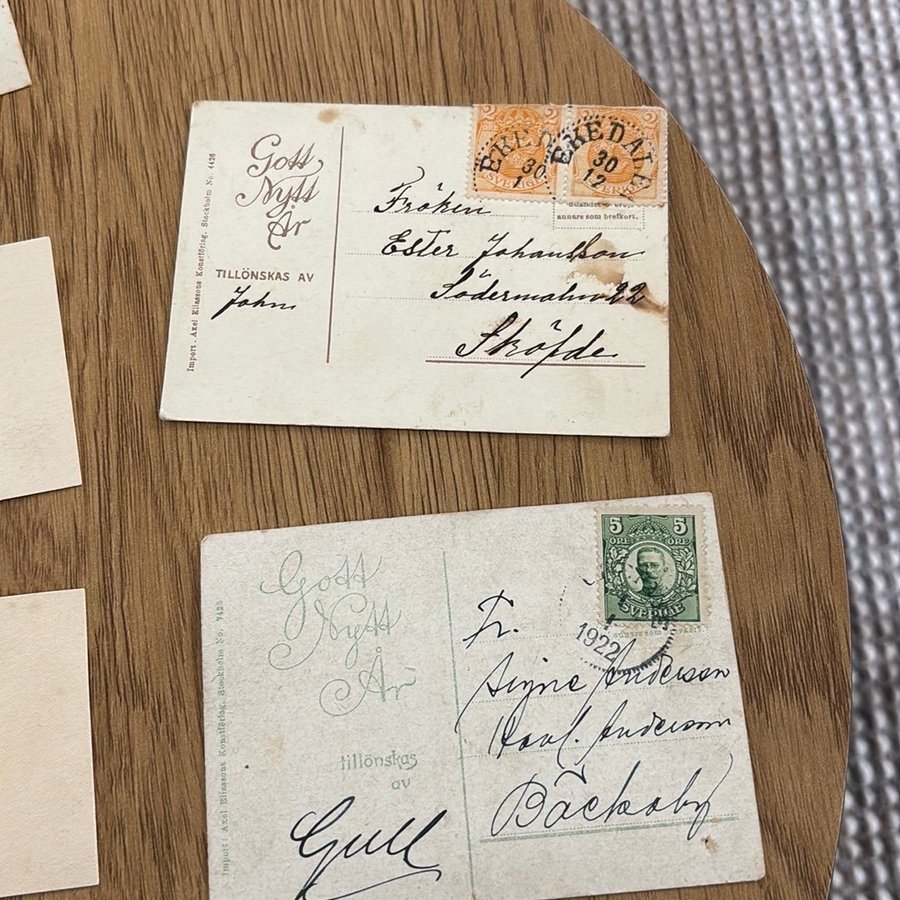 Gott
Nytt
År
TILLÖNSKAS AV
John
Import. Axel Eliassons Konstförlag. Stockholm No. 4426
2 2
ÖRE
SVERIGE SVERIGE
EKED
30
1
EKEDALEN
30
12
annars som brefkort.
Fröken
Ester Johansson
Södermalm 22
Sköfde
Gott
Nytt
År
tillönskas
av
Gull
Import. Axel Eliassons Konstförlag. Stockholm No. 7425
5 5
ÖRE ÖRE
SVERIGE
1922
annars som brevkort.
Fr.
Signe Anderson
Anderson
Bäckaby